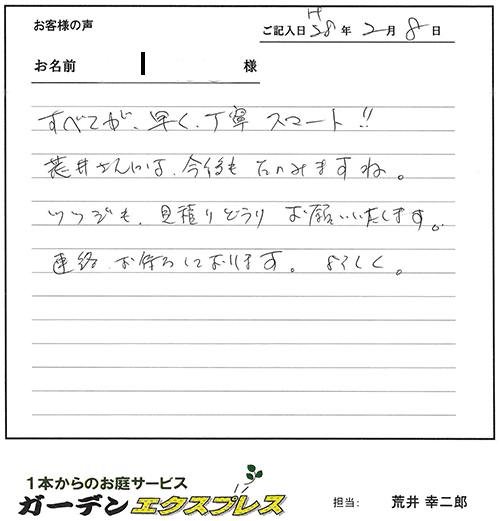 お客様の声
ご記入日 H28年 2月 8日
お名前 I 様
すべてが、早く、丁寧 スマート!!
荒井さんには、今後も たのみますね。
ツツジも、見積りどうり お願いいたします。
連絡、お待ちしております。 よろしく。
1本からのお庭サービス
ガーデンエクスプレス
担当: 荒井 幸二郎